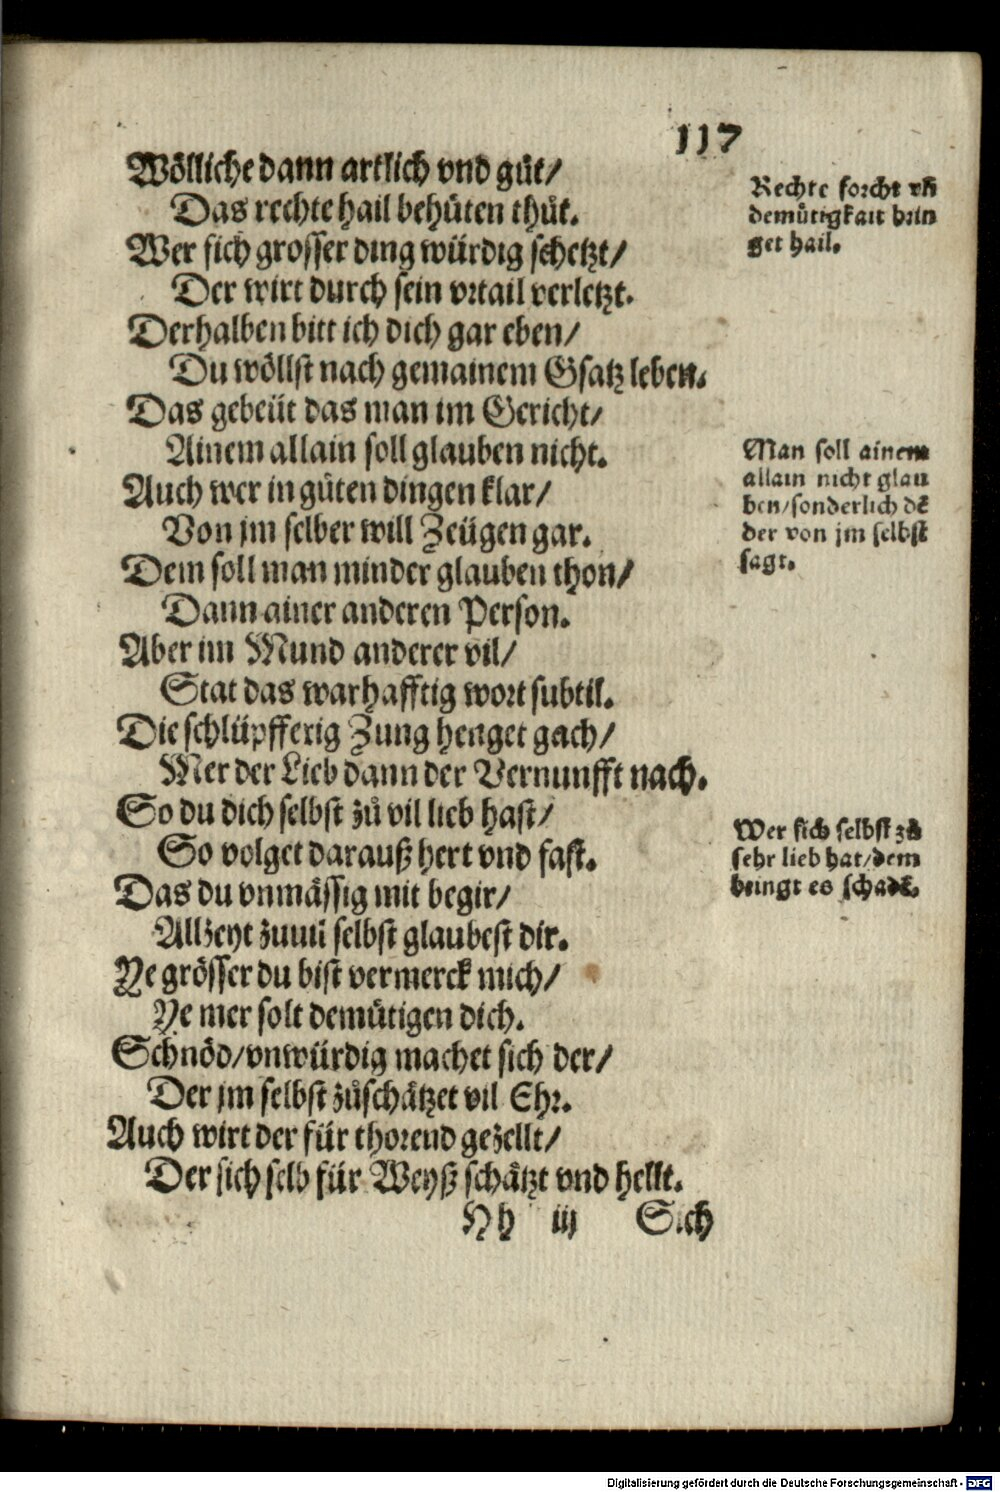 117
Wölliche dann artlich vnd gůt/
Das rechte hail behüten thůt.
Wer sich grosser ding würdig schetzt/
Der wirt durch sein vrtail verletzt.
Derhalben bitt ich dich gar eben/
Du wöllst nach gemainem Gsatz leben.
Das gebeüt das man im Gericht/
Ainem allain soll glauben nicht.
Auch wer in gůten dingen klar/
Von jm selber will Zeügen gar.
Dem soll man minder glauben thon/
Dann ainer anderen Person.
Aber im Mund anderer vil/
Stat das warhafftig wort subtil.
Die schlüpfferig Zung henget gach/
Mer der Lieb dann der Vernunfft nach.
So du dich selbst zů vil lieb hast/
So volget darauß hert vnd fast.
Das du vnmässig mit begir/
Allzeyt zuuil selbst glaubest dir.
Ye grösser du bist vermerck mich/
Ye mer solt demütigen dich.
Schnöd/vnwürdig machet sich der/
Der jm selbst zůschätzet vil Ehr.
Auch wirt der für thorend gezellt/
Der sich selb für Weyß schätzt vnd hellt.
Hh iij Sich
Rechte forcht vñ
demütigkait brin
get hail.
Man soll ainem
allain nicht glau
ben/sonderlich dē
der von jm selbst
sagt.
Wer sich selbst zů
sehr lieb hat/dem
bringt es schadē.
Digitalisierung gefördert durch die Deutsche Forschungsgemeinschaft - DFG